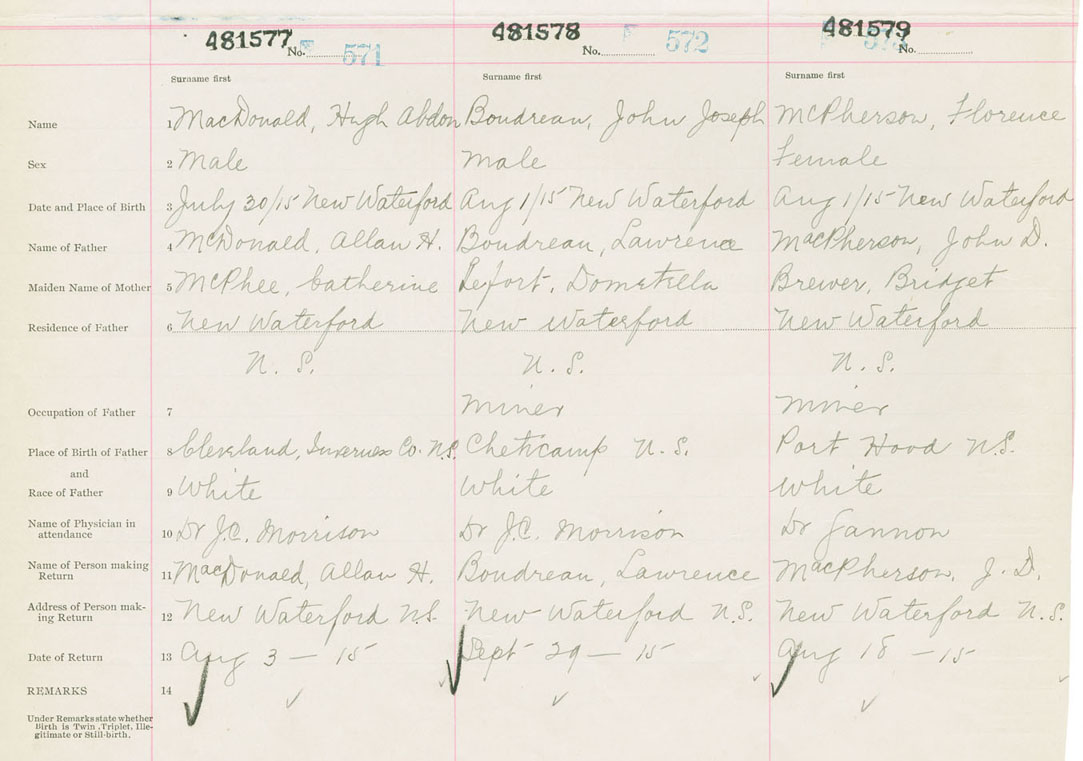 481577 481578 481579
No. 571 No. 572 No.
Surname first Surname first Surname first
Name 1 MacDonald, Hugh Abdon Boudreau, John Joseph McPherson, Florence
Sex 2 Male Male Female
Date and Place of Birth 3 July 30/15 New Waterford Aug 1/15 New Waterford Aug 1/15 New Waterford
Name of Father 4 McDonald, Allan H. Boudreau, Lawrence MacPherson, John D.
Maiden Name of Mother 5 McPhee, Catherine Lefort, Brewer, Bridget
Residence of Father 6 New Waterford New Waterford New Waterford
N. S. N. S. N. S.
Occupation of Father 7 Miner Miner
Place of Birth of Father 8 Cleveland, Inverness Co. N.S. Cheticamp N.S. Port Hood N.S.
and
Race of Father 9 White White White
Name of Physician in
attendance 10 Dr J.C. Morrison Dr J.C. Morrison Dr Gannon
Name of Person making
Return 11 MacDonald, Allan H. Boudreau, Lawrence MacPherson, J. D.
Address of Person mak-
ing Return 12 New Waterford N.S. New Waterford N.S. New Waterford N.S.
Date of Return 13 Aug 3 — 15 Sept 29 — 15 Aug 18 — 15
REMARKS 14
Under Remarks state whether
Birth is Twin, Triplet, Ille-
gitimate or Still-birth.